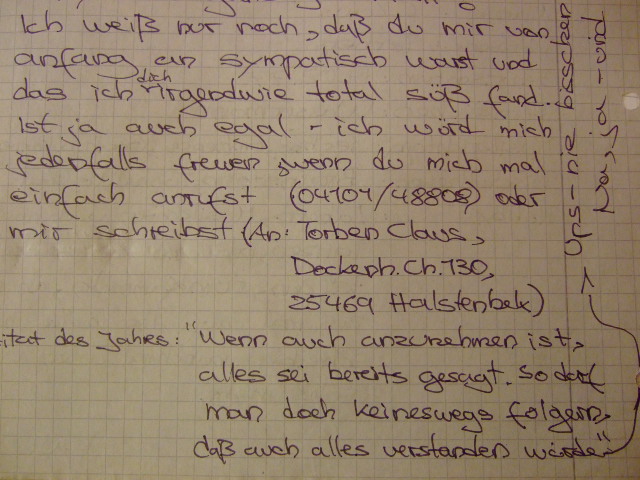 Ich weiß nur noch, daß du mir von
anfang an sympatisch warst und
das ich dich irgendwie total süß fand.
Ist ja auch egal - ich würd mich
jedenfalls freuen, wenn du mich mal
einfach anrufst (04101/48808) oder
mir schreibst (An: Torben Claus,
Dockenh. Ch. 130,
25469 Halstenbek)
itat des Jahres: "Wenn auch anzunehmen ist,
alles sei bereits gesagt. So darf
man doch keineswegs folgern,
daß auch alles verstanden würde"
Ups - nie bisschen
Na, ja - und